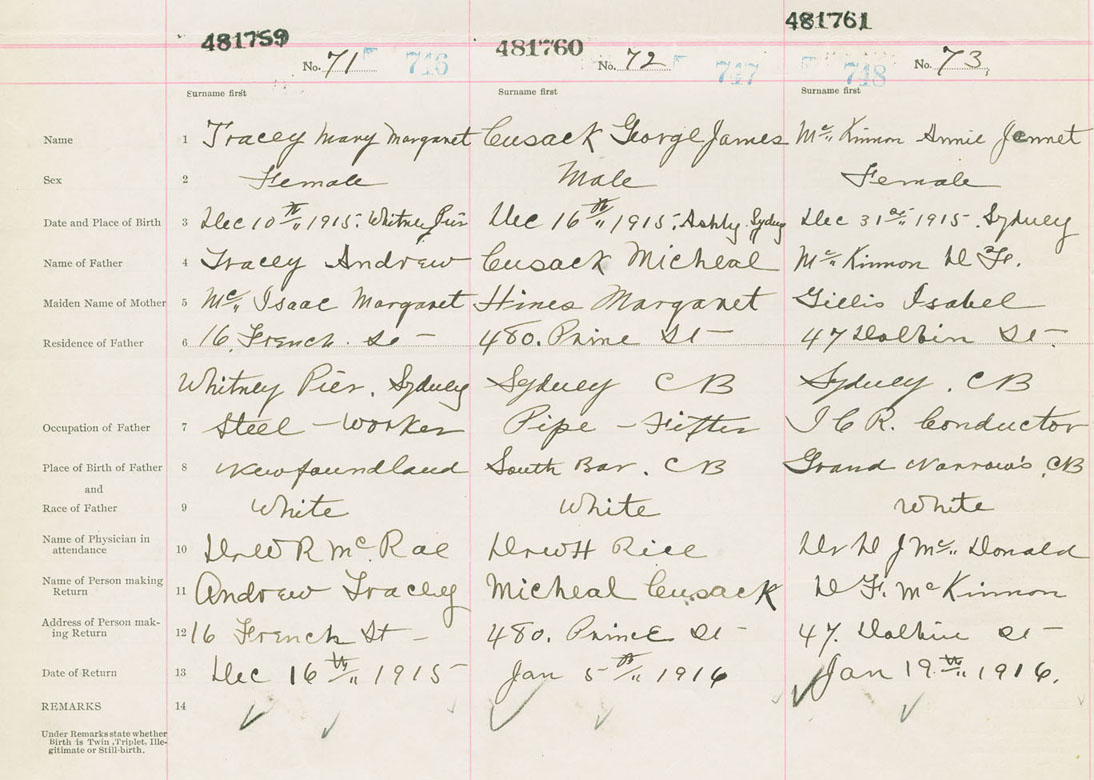 481759 481760 481761
No. 71 746 No. 72 747 748 No. 73
Surname first Surname first Surname first
Name 1 Tracey Mary Margaret Cusack George James Mc Kinnon Annie Jennet
Sex 2 Female Male Female
Date and Place of Birth 3 Dec 10th 1915. Whitney Pier Dec 16th 1915. Ashby Sydney Dec 31st 1915. Sydney
Name of Father 4 Tracey Andrew Cusack Micheal Mc Kinnon D F.
Maiden Name of Mother 5 Mc Isaac Margaret Hines Margaret Gillis Isabel
Residence of Father 6 16. French. St 480. Prine St 47 Dolbin St.
Whitney Pier. Sydney Sydney CB Sydney. CB
Occupation of Father 7 Steel - Worker Pipe - Fitter I C R. Conductor
Place of Birth of Father 8 Newfoundland South Bar. CB Grand Narrows CB
and
Race of Father 9 White White White
Name of Physician in
attendance 10 Dr W R Mc Rae Dr W H Rice Dr D J Mc Donald
Name of Person making
Return 11 Andrew Tracey Micheal Cusack D F. McKinnon
Address of Person mak-
ing Return 12 16 French St - 480. Prince St - 47. Dolbin St -
Date of Return 13 Dec 16th 1915 Jan 5th 1916 Jan 19th 1916.
REMARKS 14
Under Remarks state whether
Birth is Twin, Triplet, Ille-
gitimate or Still-birth.